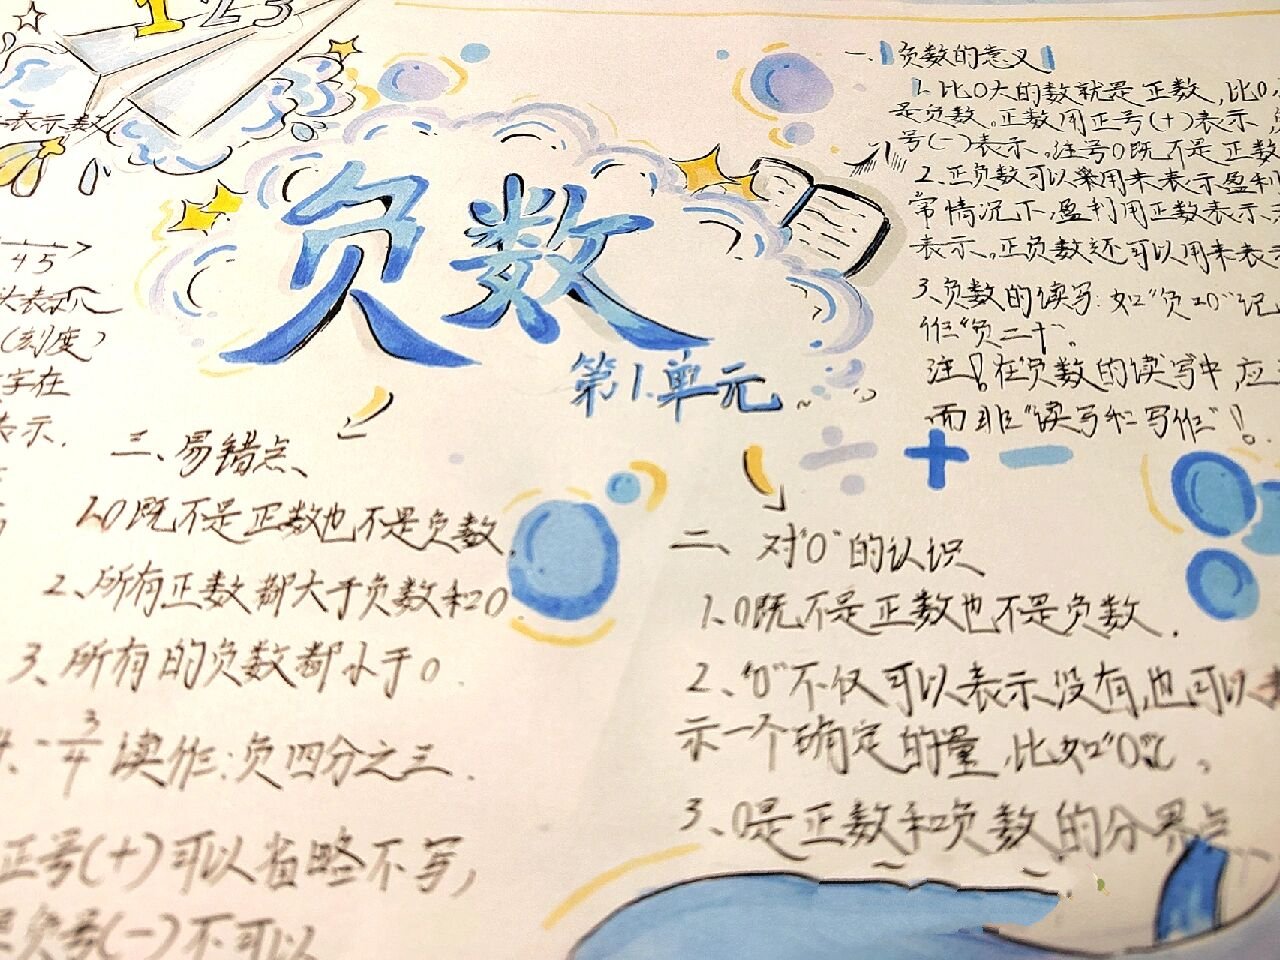 1 2 3
表示数
4 5
头表示
(刻度)
字在
表示.
负数
第1.单元
一、负数的意义
1.比0大的数就是正数,比0
是负数。正数用正号(+)表示
号(-)表示。注号0既不是正数
2.正负数可以来用来表示盈利
常情况下盈利用正数表示
表示。正负数还可以用来表示
3.负数的读写:如"负20"记
作"负二十"。
注!在负数的读写中,应
而非"读写和写作"!
三、易错点、
1.0既不是正数也不是负数.
2、所有正数都大于负数和0
3、所有的负数都小于0.
4、-3/4 读作:负四分之三.
正号(+)可以省略不写,
负号(-)不可以
二、对"0"的认识
1.0既不是正数也不是负数.
2、"0"不仅可以表示没有,也可以表
示一个确定的量,比如"0℃。
3、0是正数和负数的分界点.